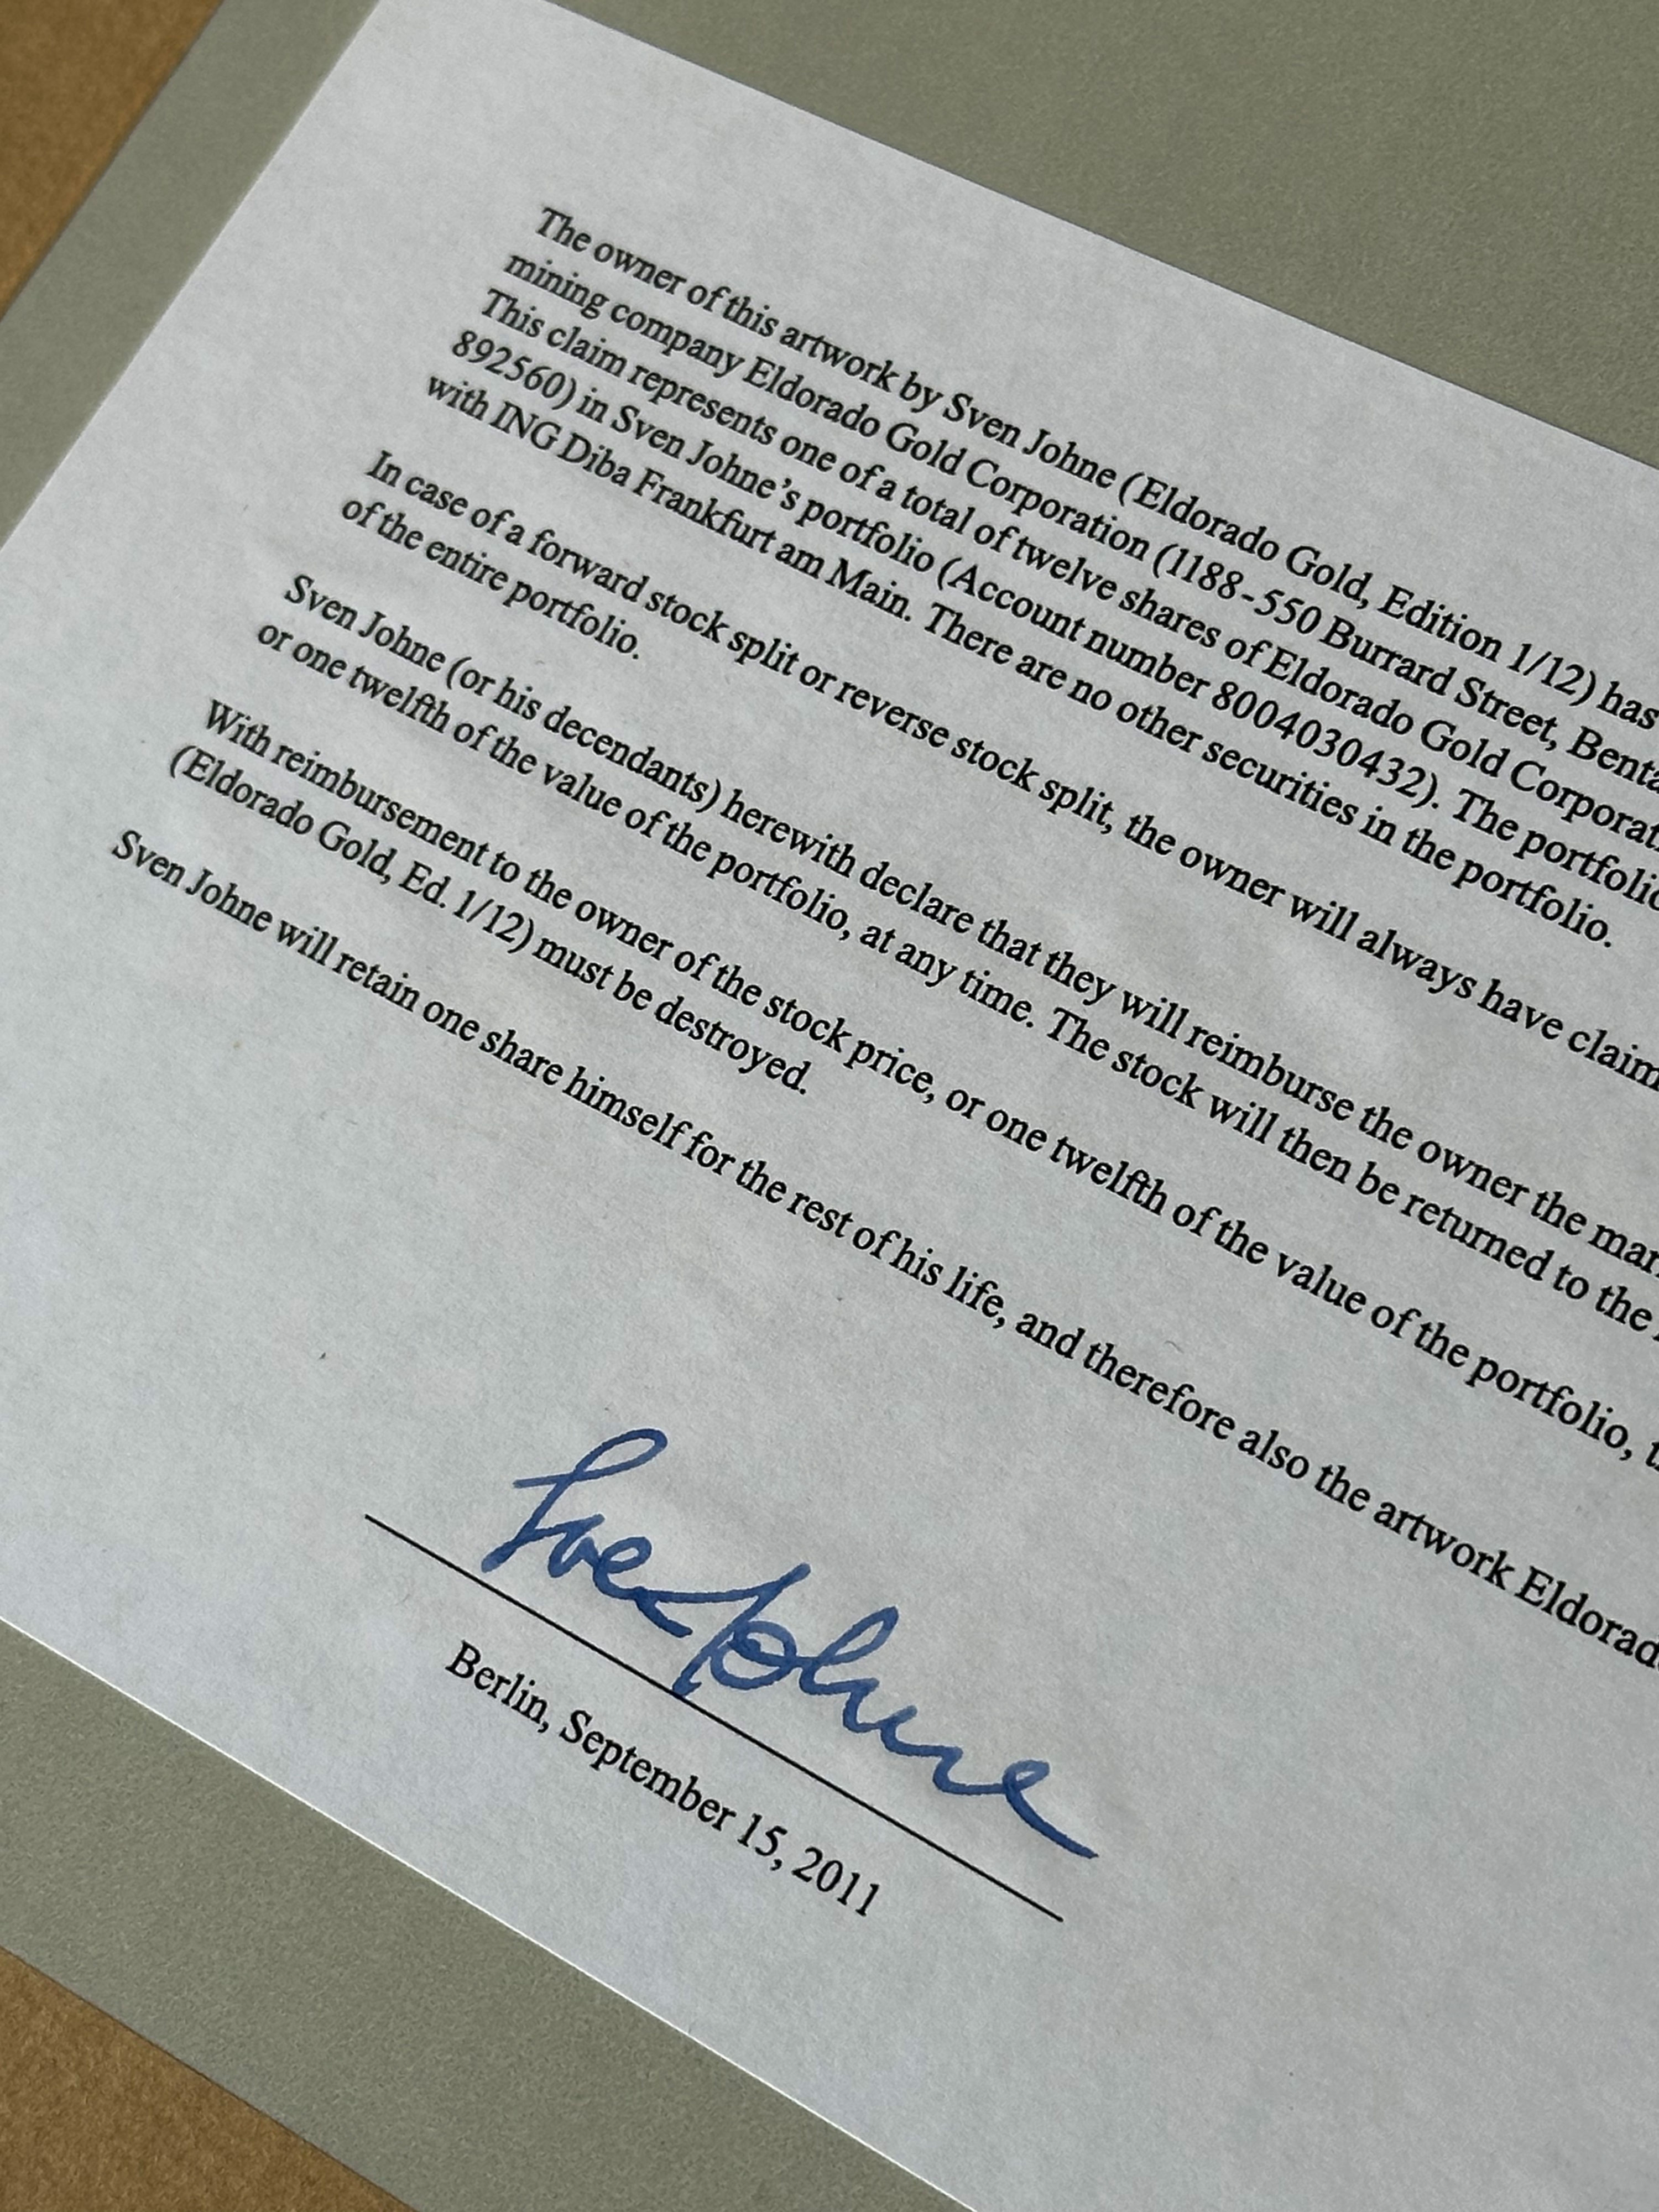 The owner of this artwork by Sven Johne (Eldorado Gold, Edition 1/12) has
mining company Eldorado Gold Corporation (1188-550 Burrard Street, Benta
This claim represents one of a total of twelve shares of Eldorado Gold Corporati
892560) in Sven Johne's portfolio (Account number 8004030432). The portfolio
with ING Diba Frankfurt am Main. There are no other securities in the portfolio.
In case of a forward stock split or reverse stock split, the owner will always have claim
of the entire portfolio.
Sven Johne (or his decendants) herewith declare that they will reimburse the owner the mar
or one twelfth of the value of the portfolio, at any time. The stock will then be returned to the
With reimbursement to the owner of the stock price, or one twelfth of the value of the portfolio, t
(Eldorado Gold, Ed. 1/12) must be destroyed.
Sven Johne will retain one share himself for the rest of his life, and therefore also the artwork Eldorado
Sven Johne
Berlin, September 15, 2011